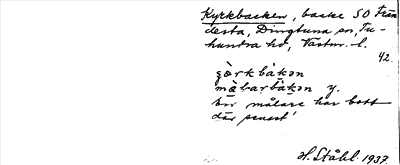 Kyrkbacken, backe SO Från
desta, Dingtuna sn, Tu-
hundra hd, Västm. l.
42.
çò̱rk bàkən
mà̱barbàkən y.
En målare har bott
där senast'
H. Ståhl 1937.